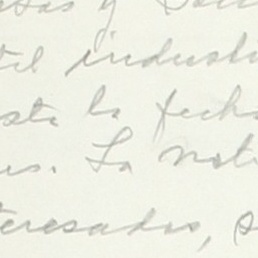 sas y
til industri
sta la fech
es. La not
teresados, s